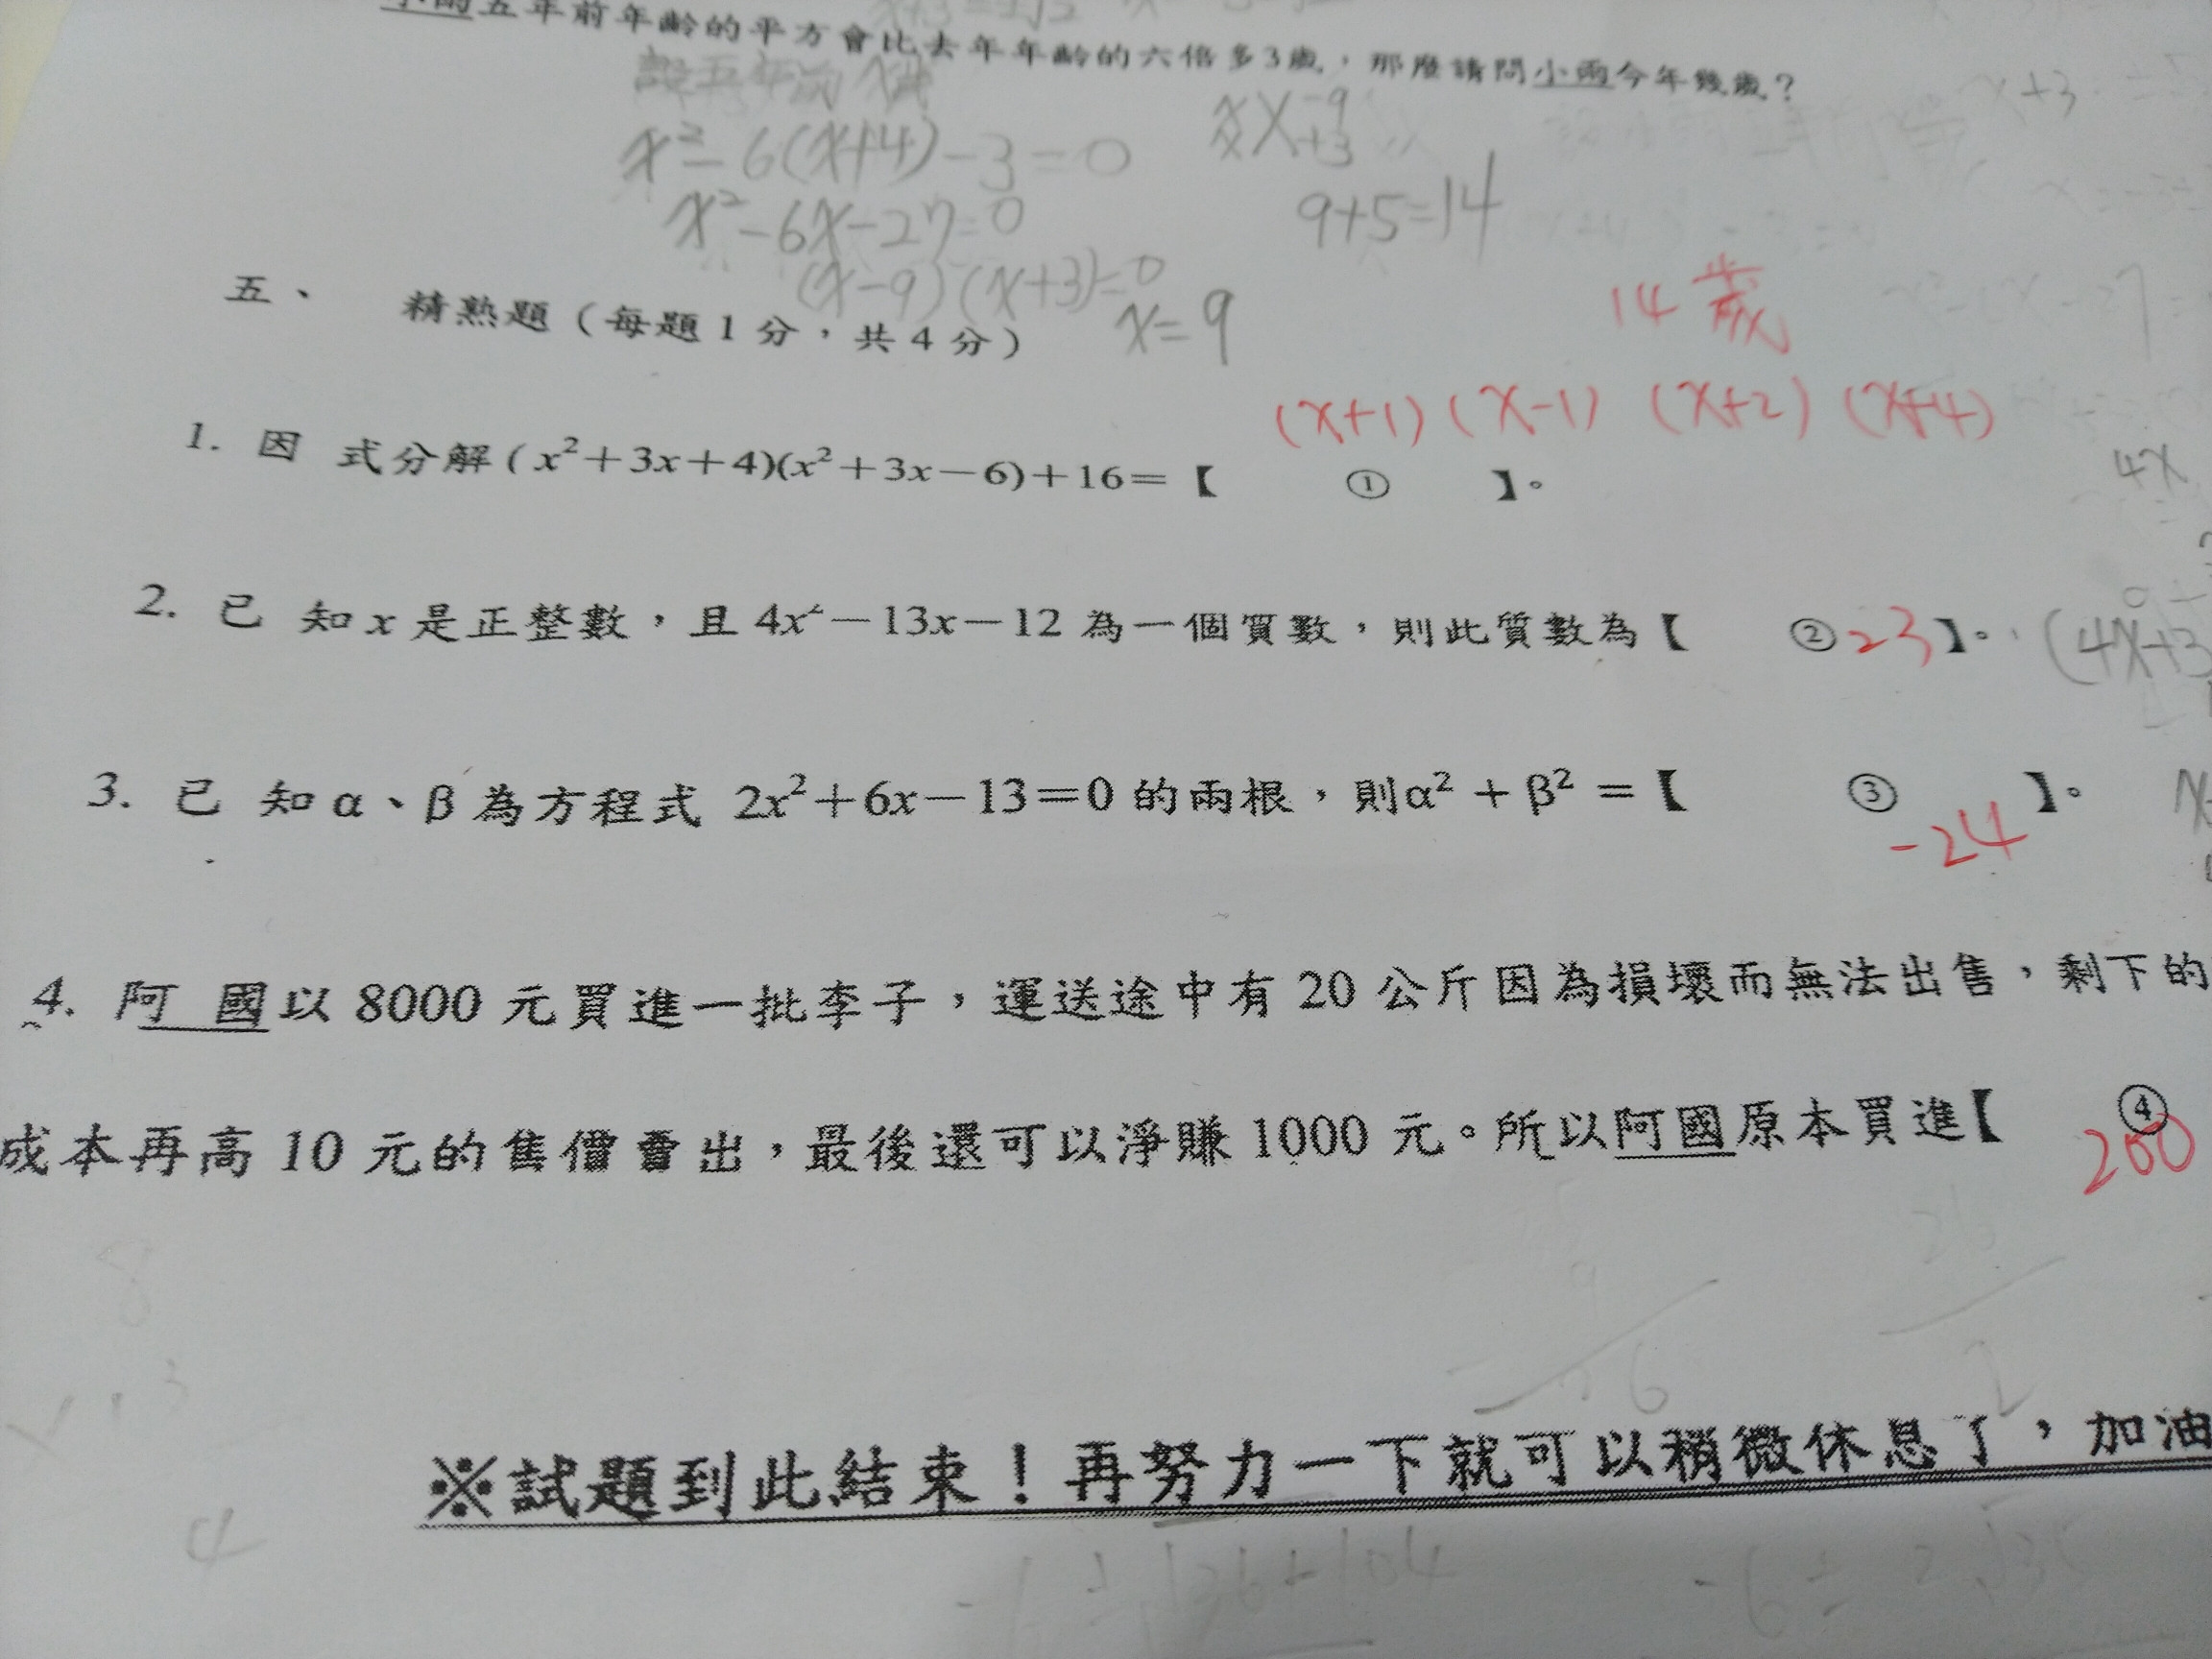 小雨五年前年齡的平方會比去年年齡的六倍多3歲，那麼請問小雨今年幾歲？
設五年前x歲
x²-6(x+4)-3=0
x²-6x-27=0
(x-9)(x+3)=0
x=9
x -9
x +3
9+5=14
14歲
五、 精熟題（每題1分，共4分）
(x+1)(x-1)(x+2)(x+4)
1. 因 式分解(x²+3x+4)(x²+3x-6)+16=【 ① 】。
4x
2. 已 知x是正整數，且4x²-13x-12為一個質數，則此質數為【 ②23】。
(4x+3
3. 已 知α、β為方程式 2x²+6x-13=0的兩根，則α²+β²=【 ③ 】。
-24
4. 阿 國以8000元買進一批李子，運送途中有20公斤因為損壞而無法出售，剩下的
成本再高10元的售價賣出，最後還可以淨賺1000元。所以阿國原本買進【 ④
200
※試題到此結束！再努力一下就可以稍微休息了，加油